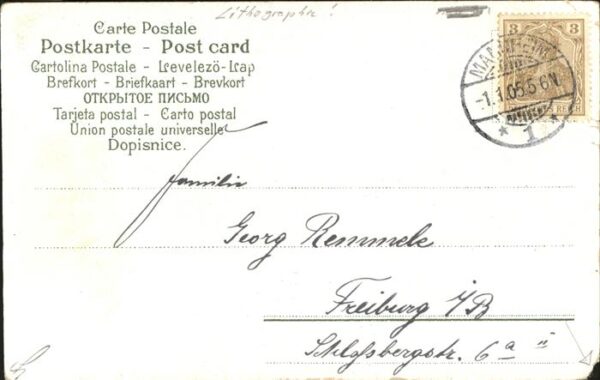 Lithographie!
Carte Postale
Postkarte – Post card
Cartolina Postale – Levelezö-Lap
Brefkort – Briefkaart – Brevkort
ОТКРЫТОЕ ПИСЬМО
Tarjeta postal – Carto postal
Union postale universelle
Dopisnice.
3 3
MANNHEIM
-1.1.05.5-6N.
* 1 *
REICH
Familie
Georg Remmele
Freiburg i/B
Schloßbergstr. 6a II